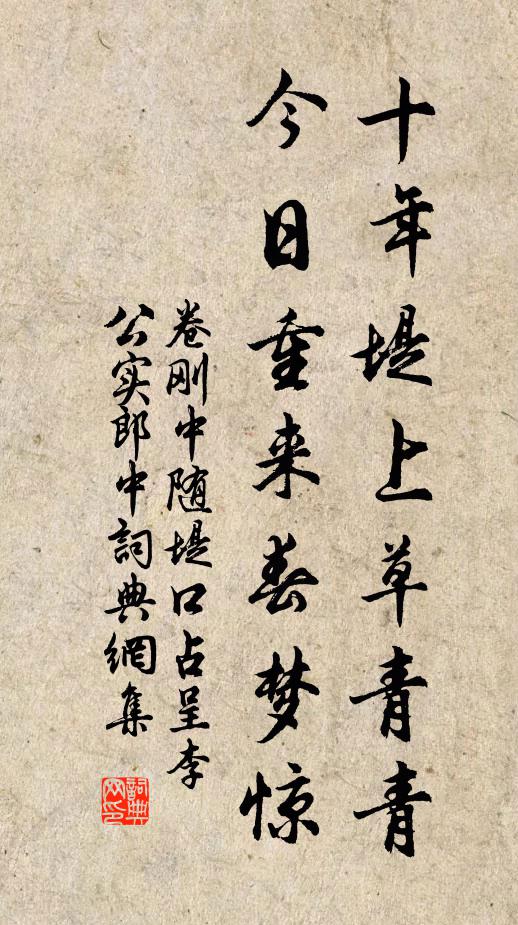 十年堤上草青青
今日重来春梦惊
卷刚中随堤口占呈李
公实郎中詞典網集
詞典网印